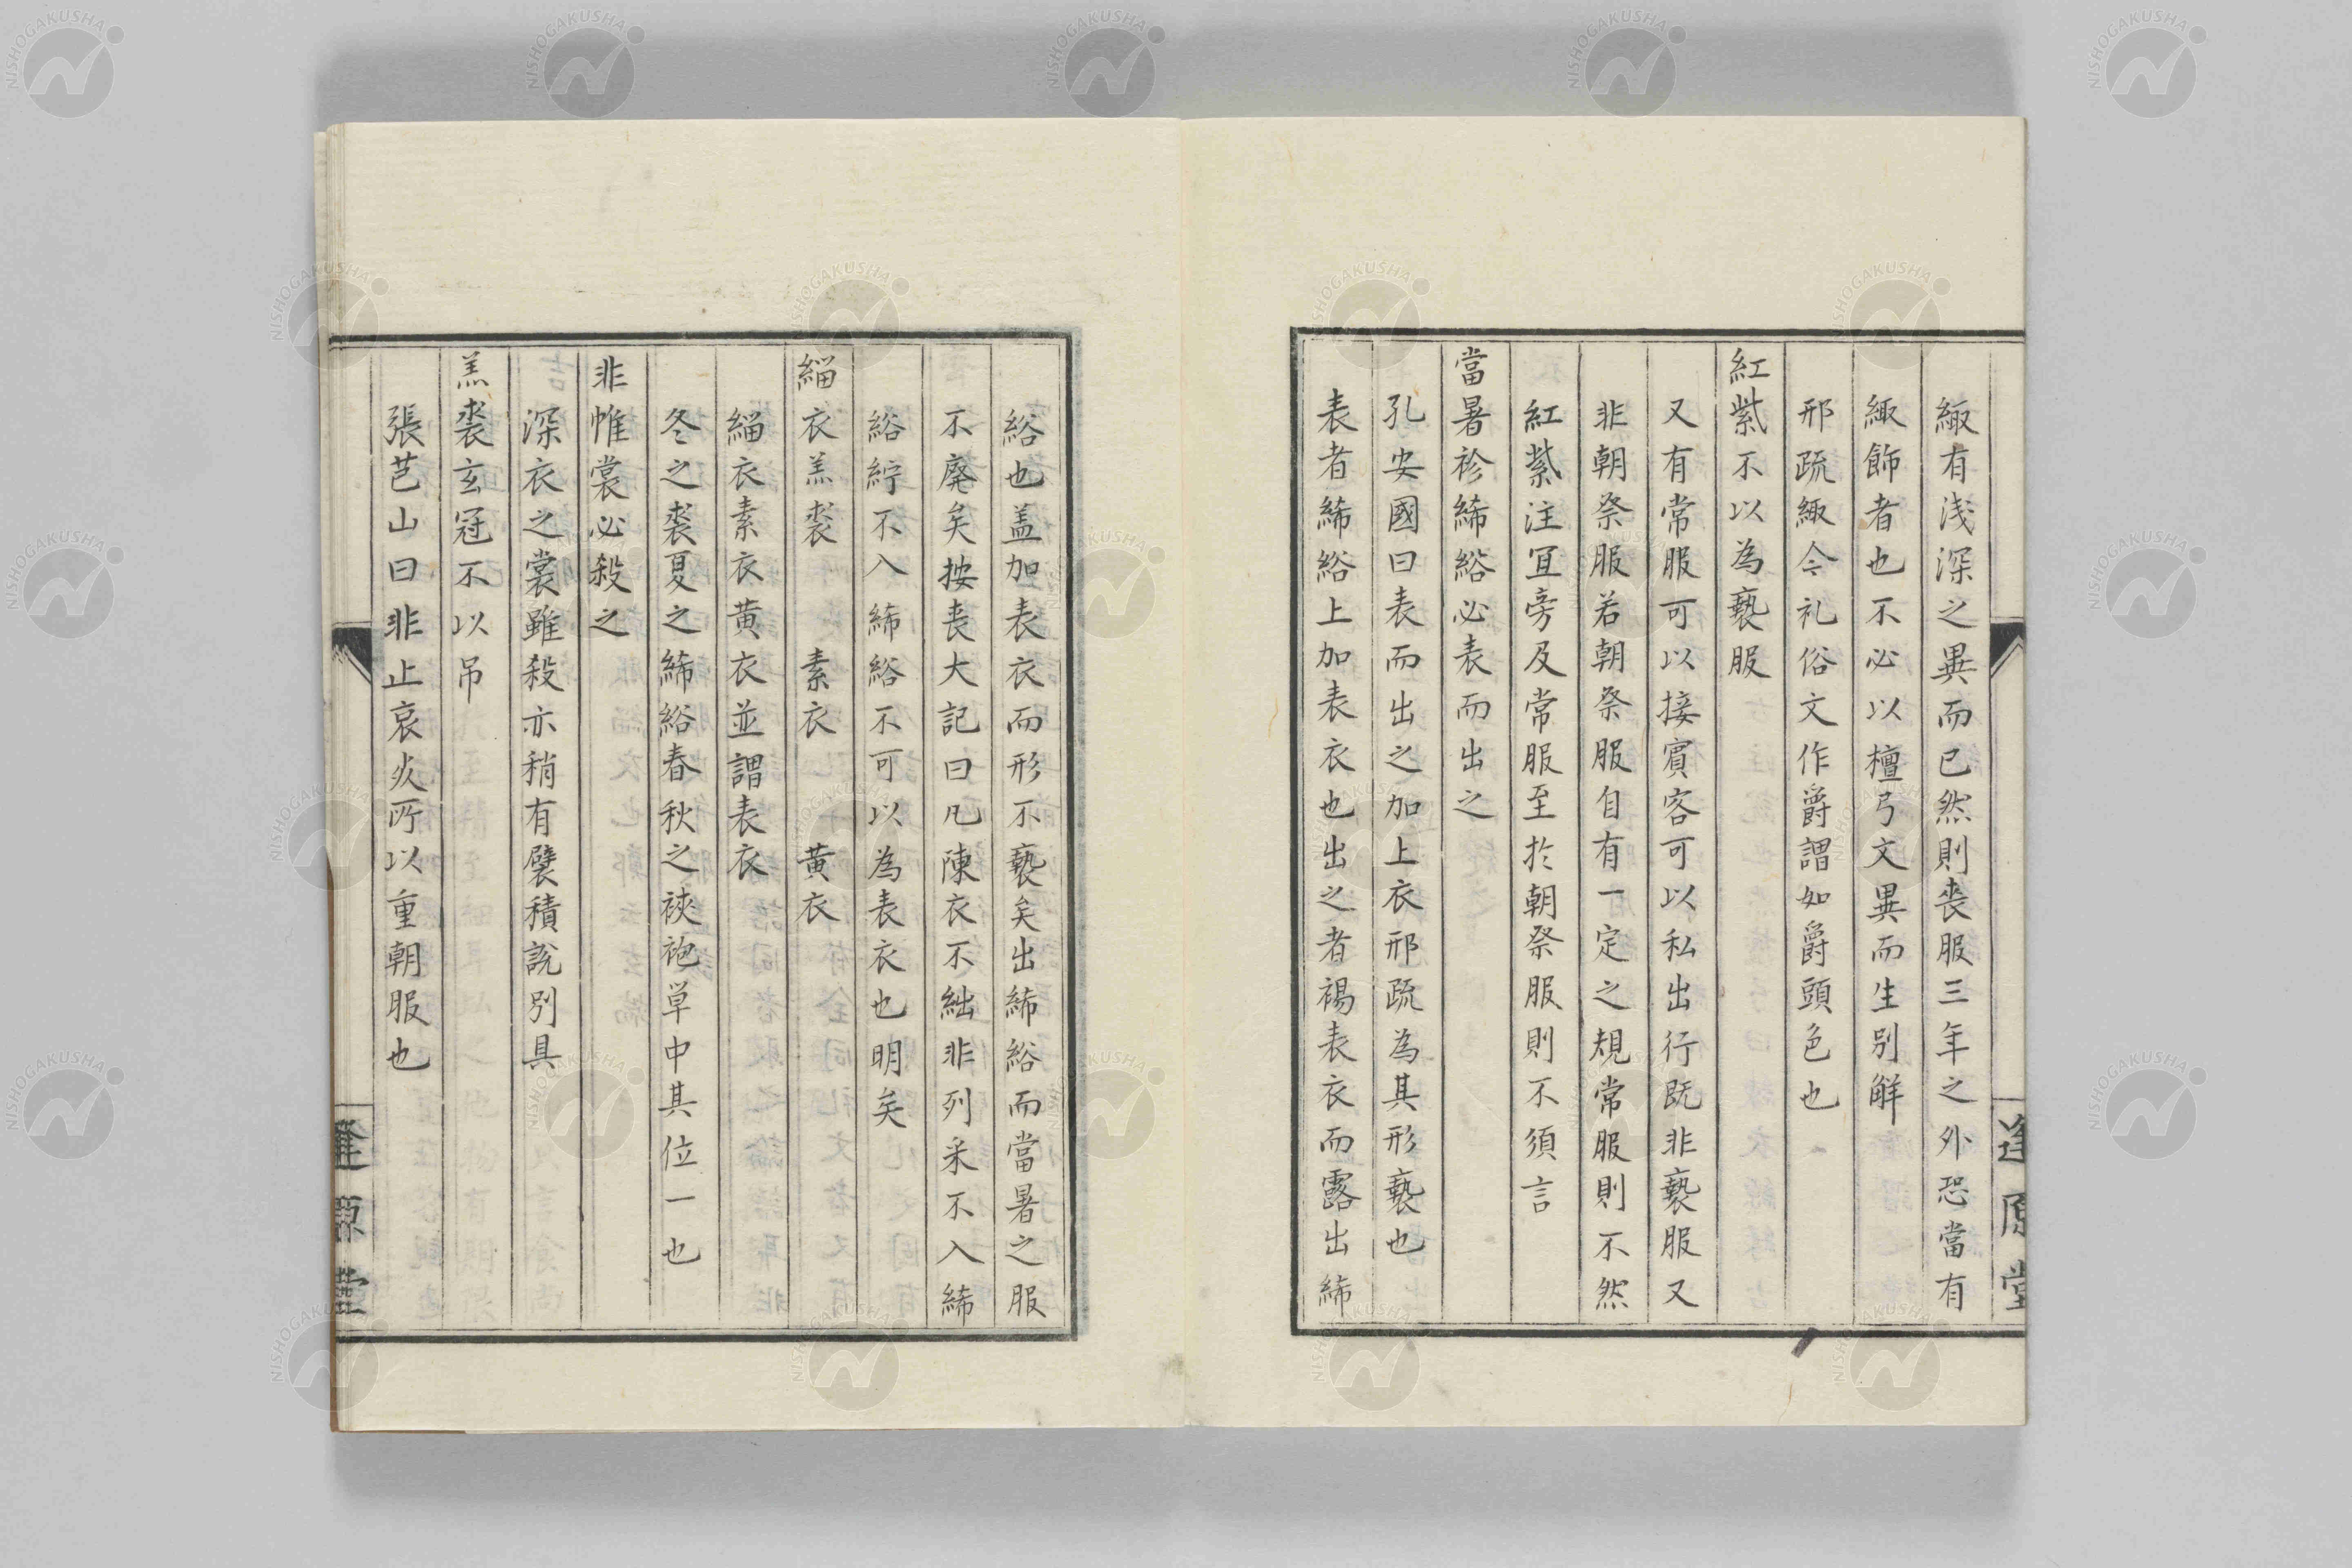 緅有浅深之異而已然則喪服三年之外恐當有
緅飾者也不必以檀弓文異而生別解
邢疏緅今礼俗文作爵謂如爵頭色也
紅紫不以為褻服
又有常服可以接賓客可以私出行既非褻服又
非朝祭服若朝祭服自有一定之規常服則不然
紅紫注冝旁及常服至於朝祭服則不須言
當暑袗絺綌必表而出之
孔安國曰表而出之加上衣邢疏為其形褻也
表者絺綌上加表衣也出之者裼表衣而露出絺
逢原堂
綌也盖加表衣而形不褻矣出絺綌而當暑之服
不廃矣按喪大記曰凡陳衣不絀非列采不入絺
綌紵不入絺綌不可以為表衣也明矣
緇衣羔裘　素衣　黄衣
緇衣素衣黄衣並謂表衣
冬之裘夏之絺綌春秋之裌袍単中其位一也
非帷裳必殺之
深衣之裳雖殺亦稍有襞積説別具
羔裘玄冠不以吊
張芑山曰非止哀死所以重朝服也
逢原堂
NISHOGAKUSHA